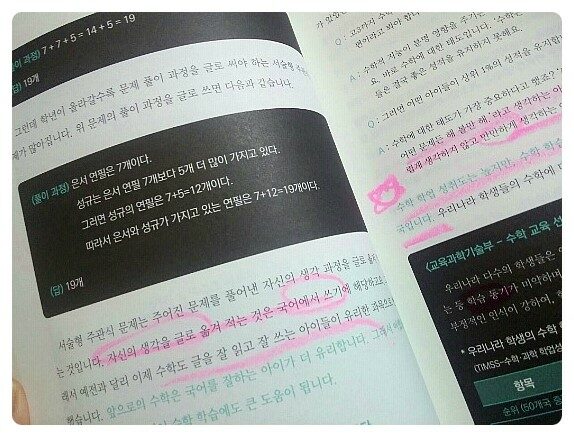 7 + 7 + 5 = 14 + 5 = 19
(답) 19개
그런데 학년이 올라갈수록 문제 풀이 과정을 글로 써야 하는 서술형
제가 많아집니다. 위 문제의 풀이 과정을 글로 쓰면 다음과 같습니다.
(풀이 과정) 은서 연필은 7개이다.
성규는 은서 연필 7개보다 5개 더 많이 가지고 있다.
그러면 성규의 연필은 7+5=12개이다.
따라서 은서와 성규가 가지고 있는 연필은 7+12=19개이다.
(답) 19개
서술형 주관식 문제는 주어진 문제를 풀어낸 자신의 생각 과정을 글로
는 것입니다. 자신의 생각을 글로 옮겨 적는 것은 국어에서 쓰기에 해당하고
래서 예전과 달리 이제 수학도 글을 잘 읽고 잘 쓰는 아이들이 유리한 과목으로
했습니다. 앞으로의 수학은 국어를 잘하는 아이가 더 유리합니다. 그래서
수학 학습에도 큰 도움이 됩니다.
편이라고 봐야 합니다.
A : 수학적 지능이 분명 영향을 주기는
요. 바로 수학에 대한 태도입니다. '수학은
들은 결국 좋은 성적을 유지하지 못해요.
Q : 그러면 어떤 아이들이 상위 1%의 성적을 유지합
A : 수학에 대한 태도가 가장 중요하다고 했죠?
어떤 문제든 해 볼만 해.'라고 생각하는 아이
렵게 생각하지 않고 만만하게 생각하는
수학 학업 성취도는 높지만, 수학 학습
국입니다. 우리나라 학생들의 수학에 대
(교육과학기술부 - 수학 교육 선
우리나라 다수의 학생들은
는 등 학습 동기가 미약하며
부정적인 인식이 강하여,
* 우리나라 학생의 수학
(TIMSS-수학·과학 학업성
항목
순위 (50개국 중